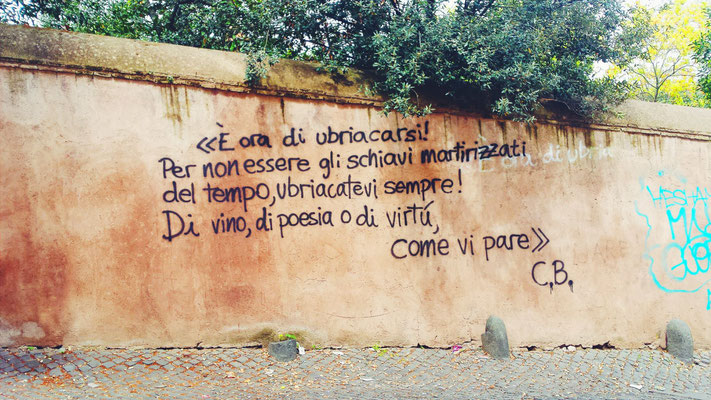 «È ora di ubriacarsi!
Per non essere gli schiavi martirizzati
del tempo, ubriacatevi sempre!
Di vino, di poesia o di virtú,
come vi pare»
C.B.
È ora di ubria